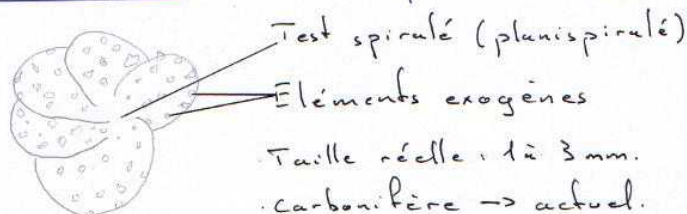 Test spirulé (planispiralé)
Eléments exogènes
Taille réelle : 1 à 3 mm.
. Carbonifère -> actuel.